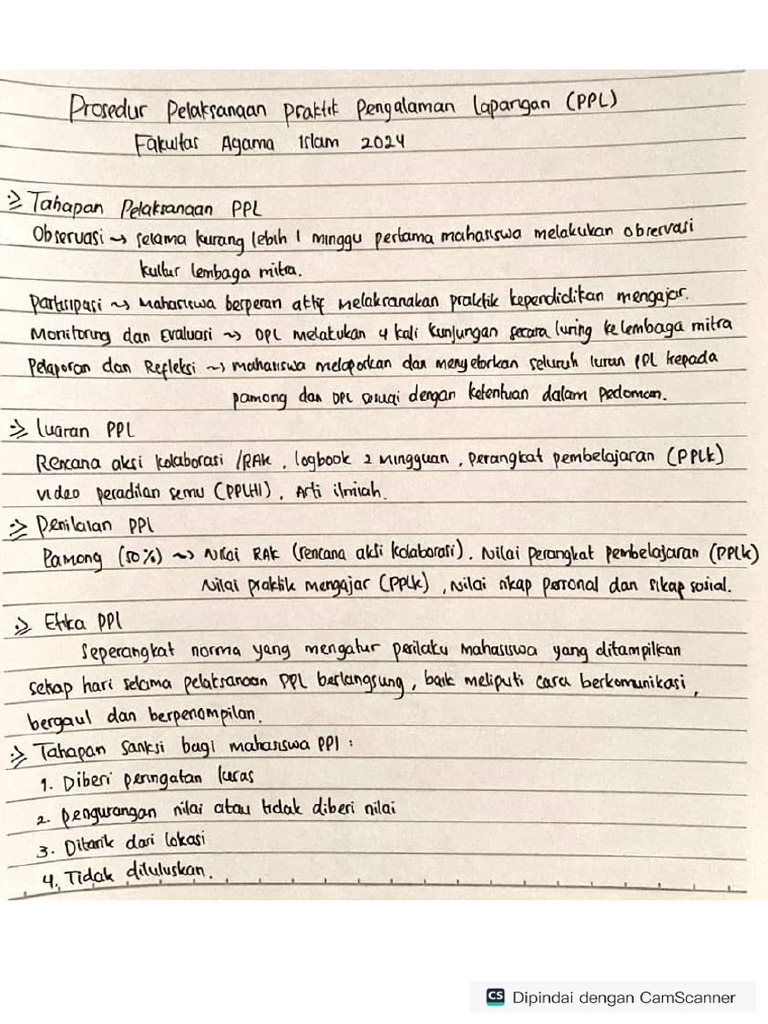 Prosedur Pelaksanaan Praktik Pengalaman Lapangan (PPL)
Fakultas Agama Islam 2024
=> Tahapan Pelaksanaan PPL
Observasi ~> selama kurang lebih 1 minggu pertama mahasiswa melakukan observasi
kultur lembaga mitra.
Partisipasi ~> Mahasiswa berperan aktif melaksanakan praktik kependidikan mengajar.
Monitoring dan Evaluasi ~> DPL melakukan 4 kali kunjungan secara luring ke lembaga mitra
Pelaporan dan Refleksi ~> mahasiswa melaporkan dan menyetorkan seluruh luran PPL kepada
pamong dan DPL sesuai dengan ketentuan dalam pedoman.
=> Luaran PPL
Rencana aksi kolaborasi /RAK, logbook 2 mingguan, perangkat pembelajaran (PPLK)
video peradilan semu (PPLHI), Arti ilmiah.
=> Penilaian PPL
Pamong (50%) ~> Nilai RAK (rencana aksi kolaborasi). Nilai perangkat pembelajaran (PPLK)
Nilai praktik mengajar (PPLK), Nilai sikap personal dan sikap sosial.
=> Etika PPL
Seperangkat norma yang mengatur perilaku mahasiswa yang ditampilkan
setiap hari selama pelaksanaan PPL berlangsung, baik meliputi cara berkomunikasi,
bergaul dan berpenampilan.
=> Tahapan sanksi bagi mahasiswa PPl :
1. Diberi peringatan
2. pengurangan nilai atau tidak diberi nilai
3. Ditarik dari lokasi
4. Tidak diluluskan.
CS Dipindai dengan CamScanner